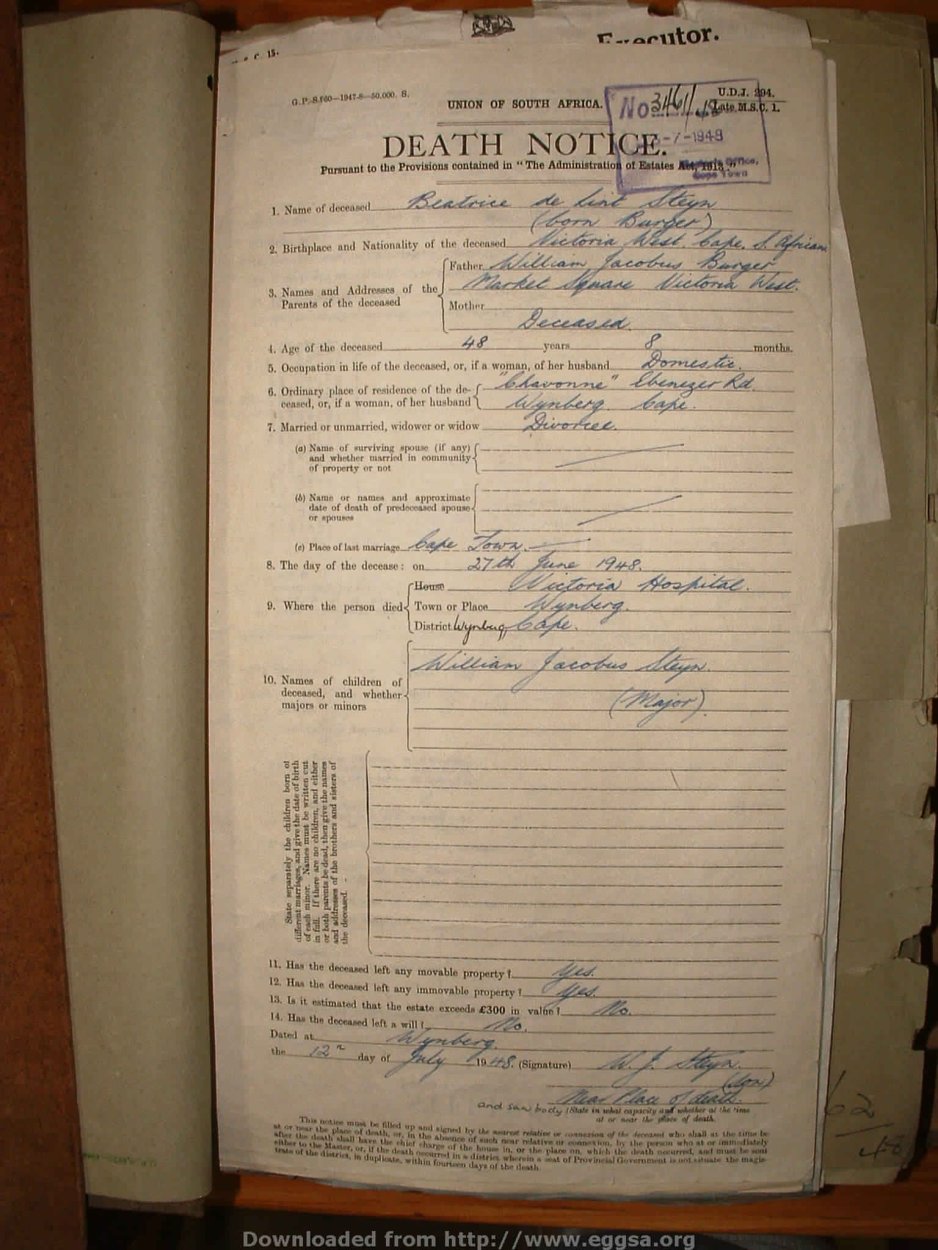 Executor.
G.P.-S.8760—1947-8—50,000. S.
UNION OF SOUTH AFRICA.
U.D.J. 294.
Late M.S.C. 1.
No 3461/48
-7-1948
Master's Office,
Cape Town
DEATH NOTICE.
Pursuant to the Provisions contained in "The Administration of Estates Act, 1913."
1. Name of deceased Beatrice de Lint Steyn
(born Burger)
2. Birthplace and Nationality of the deceased Victoria West, Cape, S. African
3. Names and Addresses of the Parents of the deceased
Father William Jacobus Burger
Market Square Victoria West.
Mother
Deceased.
4. Age of the deceased 48 years 8 months.
5. Occupation in life of the deceased, or, if a woman, of her husband Domestic.
6. Ordinary place of residence of the de- "Chavonne" Ebenezer Rd.
ceased, or, if a woman, of her husband Wynberg. Cape.
7. Married or unmarried, widower or widow Divorcee.
(a) Name of surviving spouse (if any)
and whether married in community
of property or not
(b) Name or names and approximate
date of death of predeceased spouse
or spouses
(c) Place of last marriage Cape Town.
8. The day of the decease: on 27th June 1948.
9. Where the person died
House Victoria Hospital.
Town or Place Wynberg.
District Wynberg Cape.
William Jacobus Steyn.
10. Names of children of
deceased, and whether
majors or minors
(Major).
State separately the children born of
different marriages, and give the date of birth
of each minor. Names must be written out
in full. If there are no children, and either
or both parents be dead, then give the names
and addresses of the brothers and sisters of
the deceased.
11. Has the deceased left any movable property? Yes.
12. Has the deceased left any immovable property? Yes.
13. Is it estimated that the estate exceeds £300 in value? No.
14. Has the deceased left a will? No.
Dated at Wynberg.
the 12th day of July 1948. (Signature) W. J. Steyn.
(Son)
Near Place of death.
and saw body (State in what capacity and whether at the time
at or near the place of death.
This notice must be filled up and signed by the nearest relative or connexion of the deceased who shall at the time be
at or near the place of death, or, in the absence of such near relative or connexion, by the person who at or immediately
after the death shall have the chief charge of the house in, or the place on, which the death occurred, and must be sent
either to the Master, or, if the death occurred in a district wherein a seat of Provincial Government is not situate the magis-
trate of the district, in duplicate, within fourteen days of the death.
62
48
Downloaded from http://www.eggsa.org